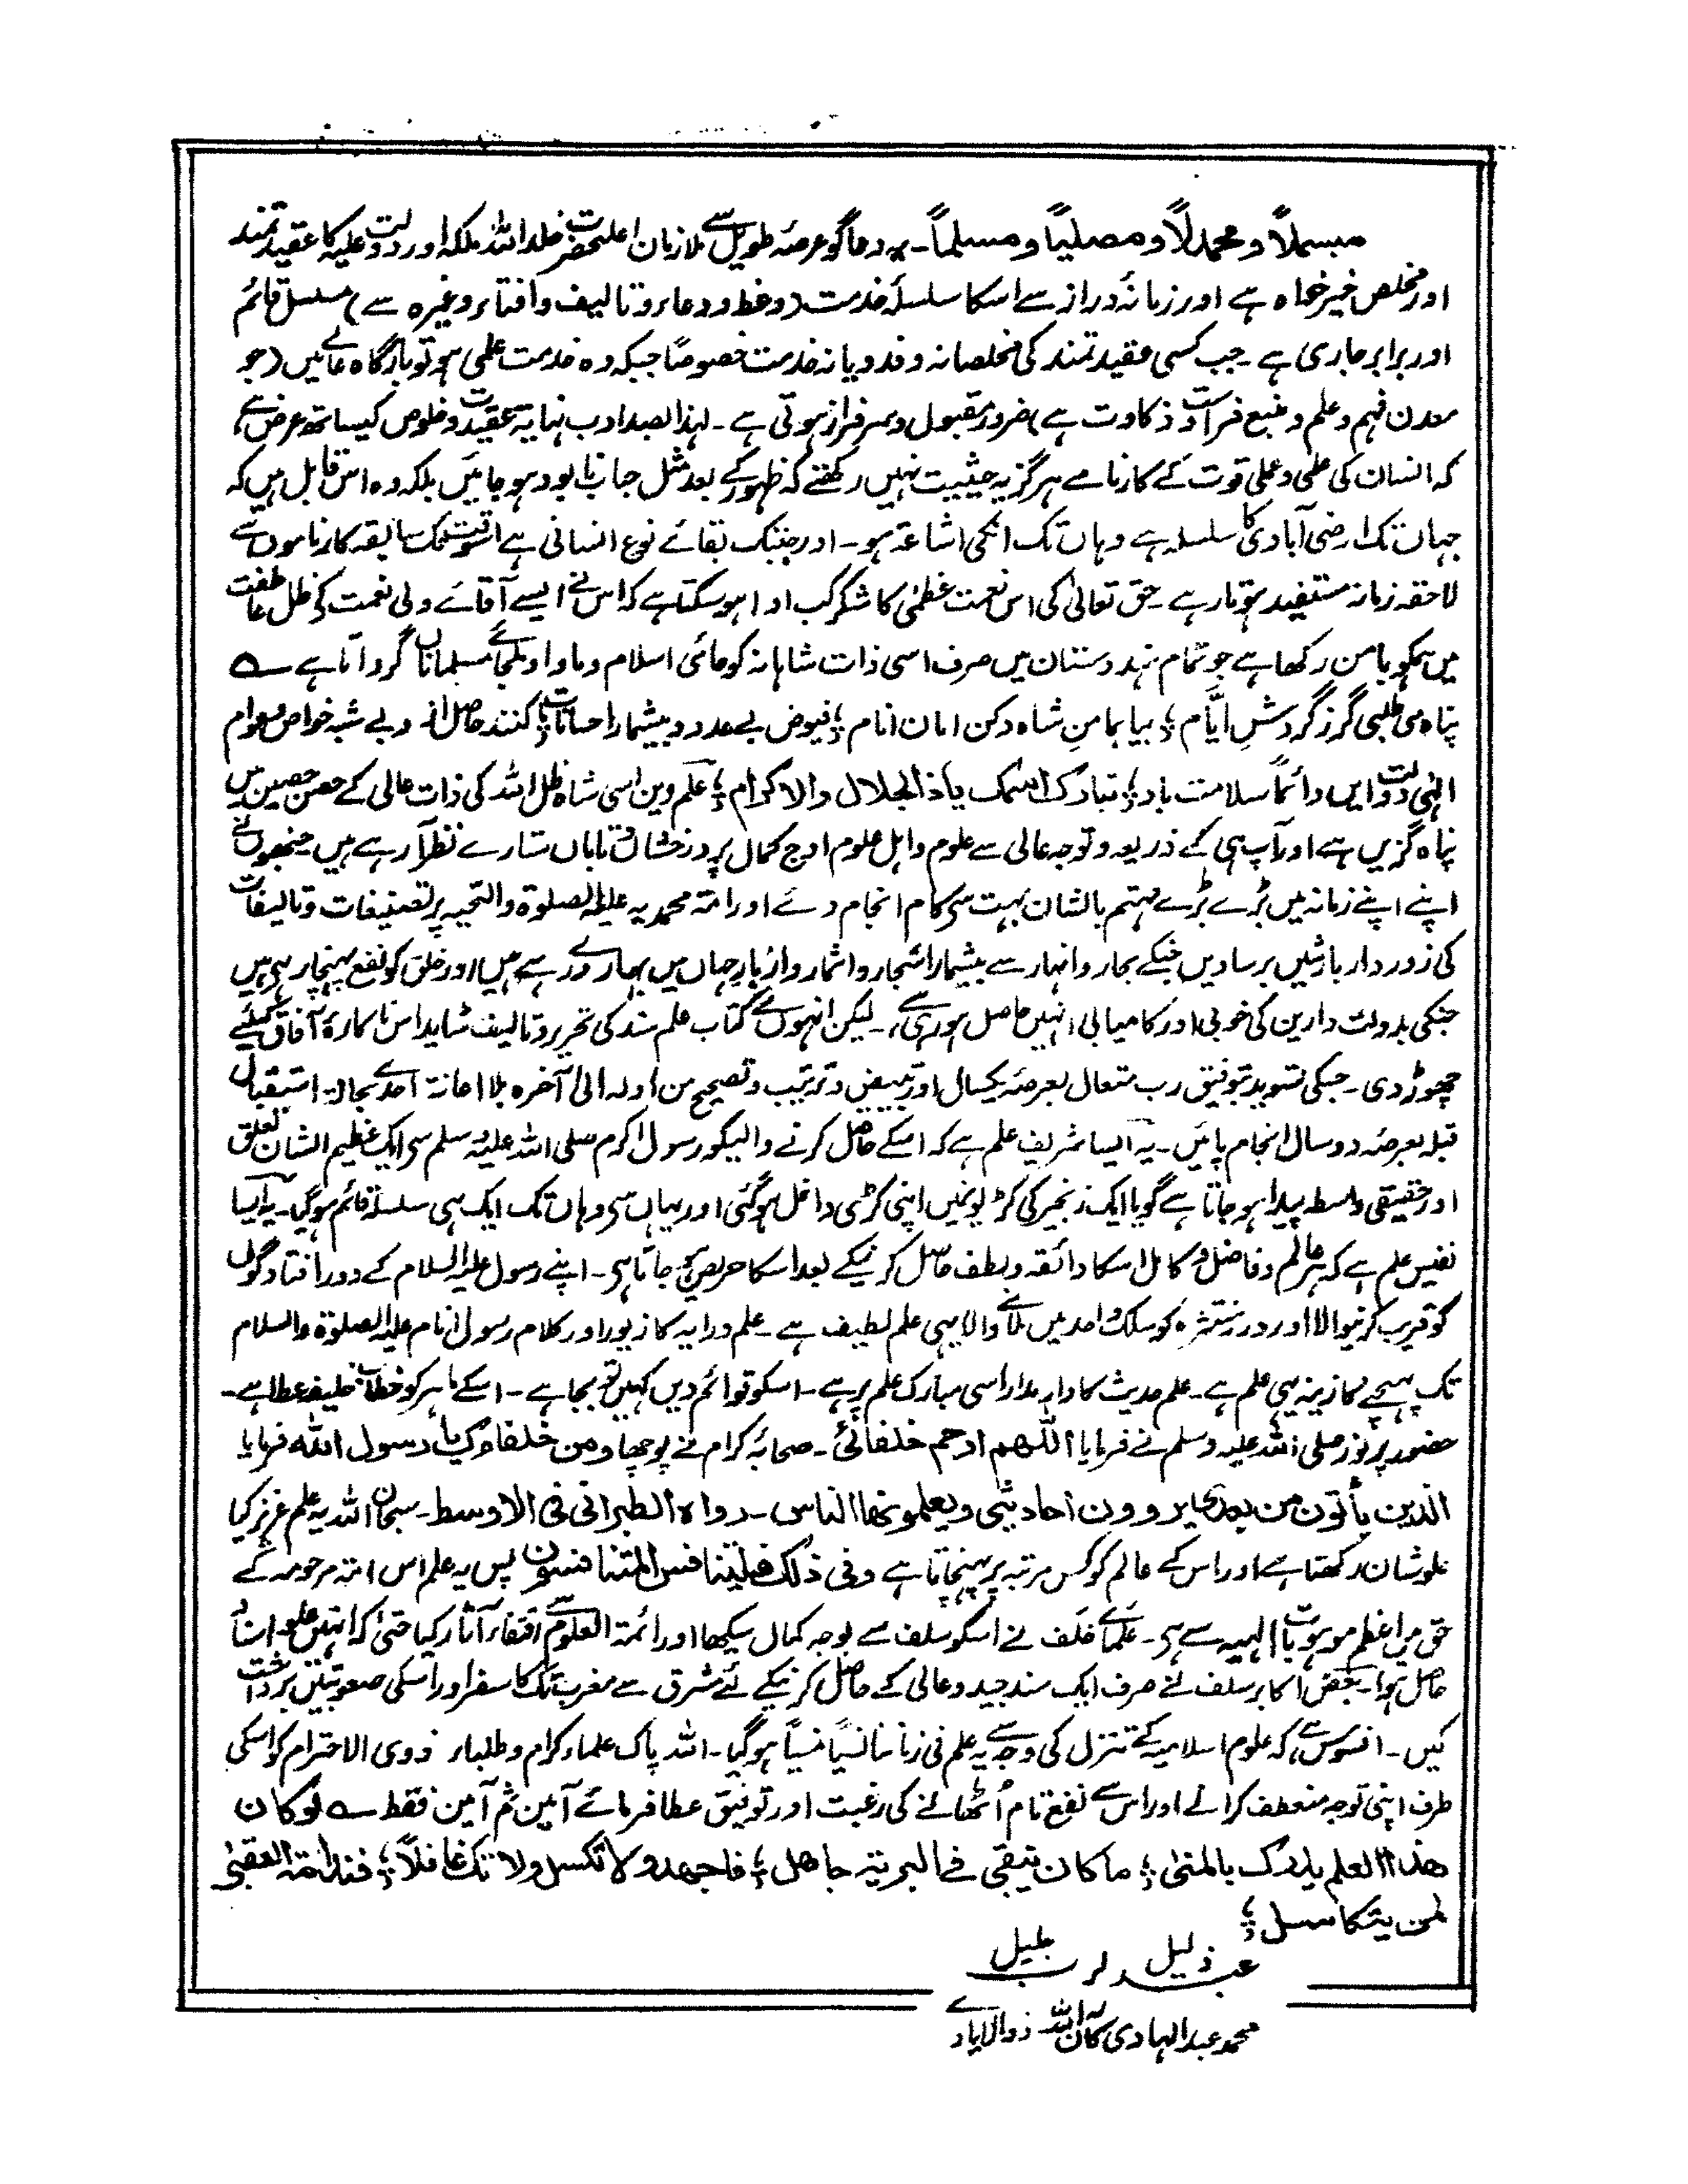 مبسملاً و محمدلاً و مصلیاً و مسلماً۔ دعاگو عرصۂ طویل سے ملازمان اعلیحضرت خلد اللہ ملکہ اور دولت علیہ کا عقیدتمند
اور مخلص خیر خواہ ہے اور زمانۂ دراز سے اسکا سلسلۂ خدمت (وعظ و دعاء و تالیف و افتاء وغیرہ سے) مسلسل قائم
اور برابر جاری ہے۔ جب کسی عقیدتمند کی مخلصانہ و فدویانہ خدمت خصوصاً جبکہ وہ خدمت علمی ہو تو بارگاہ عالی میں (جو
معدن فہم و علم و منبع فراست و ذکاوت ہے) ضرور مقبول و سرفراز ہوتی ہے۔ لہذا بصد ادب نہایۃ عقیدت و خلوص کیساتھ عرض ہے
کہ انسان کی علمی و عملی قوت کے کارنامے ہرگز یہ حیثیت نہیں رکھتے کہ ظہور کے بعد مثل حباب نابود ہو جائیں بلکہ وہ اس قابل ہیں کہ
جہاں تک ارضی آبادی کا سلسلہ ہے وہاں تک انکی اشاعۃ ہو۔ اور جبتک بقائے نوع انسانی ہے اسوقت تک سابقہ کارناموں سے
لاحقہ زمانہ مستفید ہوتا رہے۔ حق تعالیٰ کی اس نعمت عظمیٰ کا شکر کب ادا ہو سکتا ہے کہ اس نے ایسے آقائے ولی نعمت کے ظل عاطفت
میں ہمکو بامن رکھا ہے جو تمام ہندوستان میں صرف اسی ذات شاہانہ کو حامئی اسلام و ماوا و ملجائے مسلمانان گردانا ہے ؎
پناہ می طلبی گر ز گردشِ ایّام ؛ بیا بمامنِ شاہ دکن امان انام ؛ فیوض بے عدد و بیشمار احسانات ؛ کنند حاصل از و بے شبہ خواص و عوام
الٰہی دولت ایں دائماً سلامت باد ؛ تبارک اسمک یا ذا الجلال والاکرام ؛ علم دین اسی شاہ ظل اللہ کی ذات عالی کے حصن حصین میں
پناہ گزیں ہے اور آپ ہی کے ذریعہ و توجہ عالی سے علوم و اہل علوم اوج کمال پر درخشاں و تاباں ستارے نظر آ رہے ہیں جنھوں نے
اپنے اپنے زمانہ میں بڑے بڑے مہتم بالشان بہت سی کام انجام دئے اور امۃ محمدیہ علیہا الصلوۃ والتحیہ پر تصنیفات و تالیفات
کی زور دار بارشیں برسا دیں جنکے بحار و انہار سے بیشمار اشجار و اثمار و ازہار جہاں میں بہار دے رہے ہیں اور خلق کو نفع پہنچا رہی ہیں
جنکی بدولت دارین کی خوبی اور کامیابی انہیں حاصل ہو رہی ہے، ۔ لیکن انہوں نے کتاب علم سند کی تحریر و تالیف شاید اس ناکارۂ آفاق کیلئے
چھوڑ دی۔ جسکی تسوید بتوفیق رب متعال بعرصۂ یکسال اور تبییض و ترتیب و تصحیح من اولہ الی آخرہ بلا اعانۃ احدے بحالۃ استقبال
قبلہ بعرصۂ دو سال انجام پائیں۔ یہ ایسا شریف علم ہے کہ اسکے حاصل کرنے والیکو رسول اکرم صلی اللہ علیہ وسلم سے ایک عظیم الشان تعلق
اور حقیقی واسطہ پیدا ہو جاتا ہے گویا ایک زنجیر کی کڑیوں میں اپنی کڑی داخل ہو گئی اور یہاں سے وہاں تک ایک ہی سلسلہ قائم ہو گیا۔ یہ ایسا
نفیس علم ہے کہ ہر عالم و فاضل و کامل اسکا ذائقہ و لطف حاصل کرنیکے بعد اسکا حریص بن جاتا ہے۔ اپنے رسول علیہ السلام کے دور افتادگوں
کو قریب کرنیوالا اور درر منتثرہ کو سلک واحد میں لانے والا یہی علم لطیف ہے۔ علم درایہ کا زیور اور کلام رسول انام علیہ الصلوۃ والسلام
تک پہنچنے کا زینہ یہی علم ہے۔ علم حدیث کا دار مدار اسی مبارک علم پر ہے۔ اسکو قوائم دیں کہیں تو بجا ہے۔ اسکے ماہر کو خطاب خلیفہ عطا ہے۔
حضور پر نور صلی اللہ علیہ وسلم نے فرمایا اللھم ارحم خلفائی۔ صحابۂ کرام نے پوچھا ومن خلفاؤک یا رسول اللہ فرمایا
الذین یأتون من بعدی یروون احادیثی ویعلمونھا الناس۔ رواہ الطبرانی فی الاوسط۔ سبحان اللہ یہ علم عزیز کیا
علو شان رکھتا ہے اور اس کے عالم کو کس مرتبہ پر پہنچاتا ہے وفی ذلک فلیتنافس المتنافسون پس یہ علم اس امۃ مرحومہ کے
حق میں اعظم موہوبات الہیہ سے ہے۔ علمائے خلف نے اسکو سلف سے بوجہ کمال سیکھا اور ائمۃ العلوم سے اقتفاء آثار کیا حتیٰ کہ انہیں علو اسناد
حاصل ہوا۔ بعض اکابر سلف نے صرف ایک سند جید و عالی کے حاصل کرنیکے لئے مشرق سے مغرب تک کا سفر اور اسکی صعوبتیں برداشت
کیں۔ افسوس ہے، کہ علوم اسلامیہ کے تنزل کی وجہ سے یہ علم فی زماننا نسیاً منسیاً ہو گیا۔ اللہ پاک علماء کرام و طلباء ذوی الاحترام کو اسکی
طرف اپنی توجہ منعطف کرانے اور اس سے نفع تام اُٹھانے کی رغبت اور توفیق عطا فرمائے آمین ثم آمین فقط ؎ لو کان
ھذا العلم یدرک بالمنیٰ ؛ ما کان یبقی فی البریۃ جاھل ؛ فاجھد ولا تکسل ولا تک غافلاً ؛ فندامۃ العقبیٰ
لمن یتکاسل ؛
عبد ذلیل لرب جلیل
محمد عبد الہادی کان اللہ لہ ذو الایادے